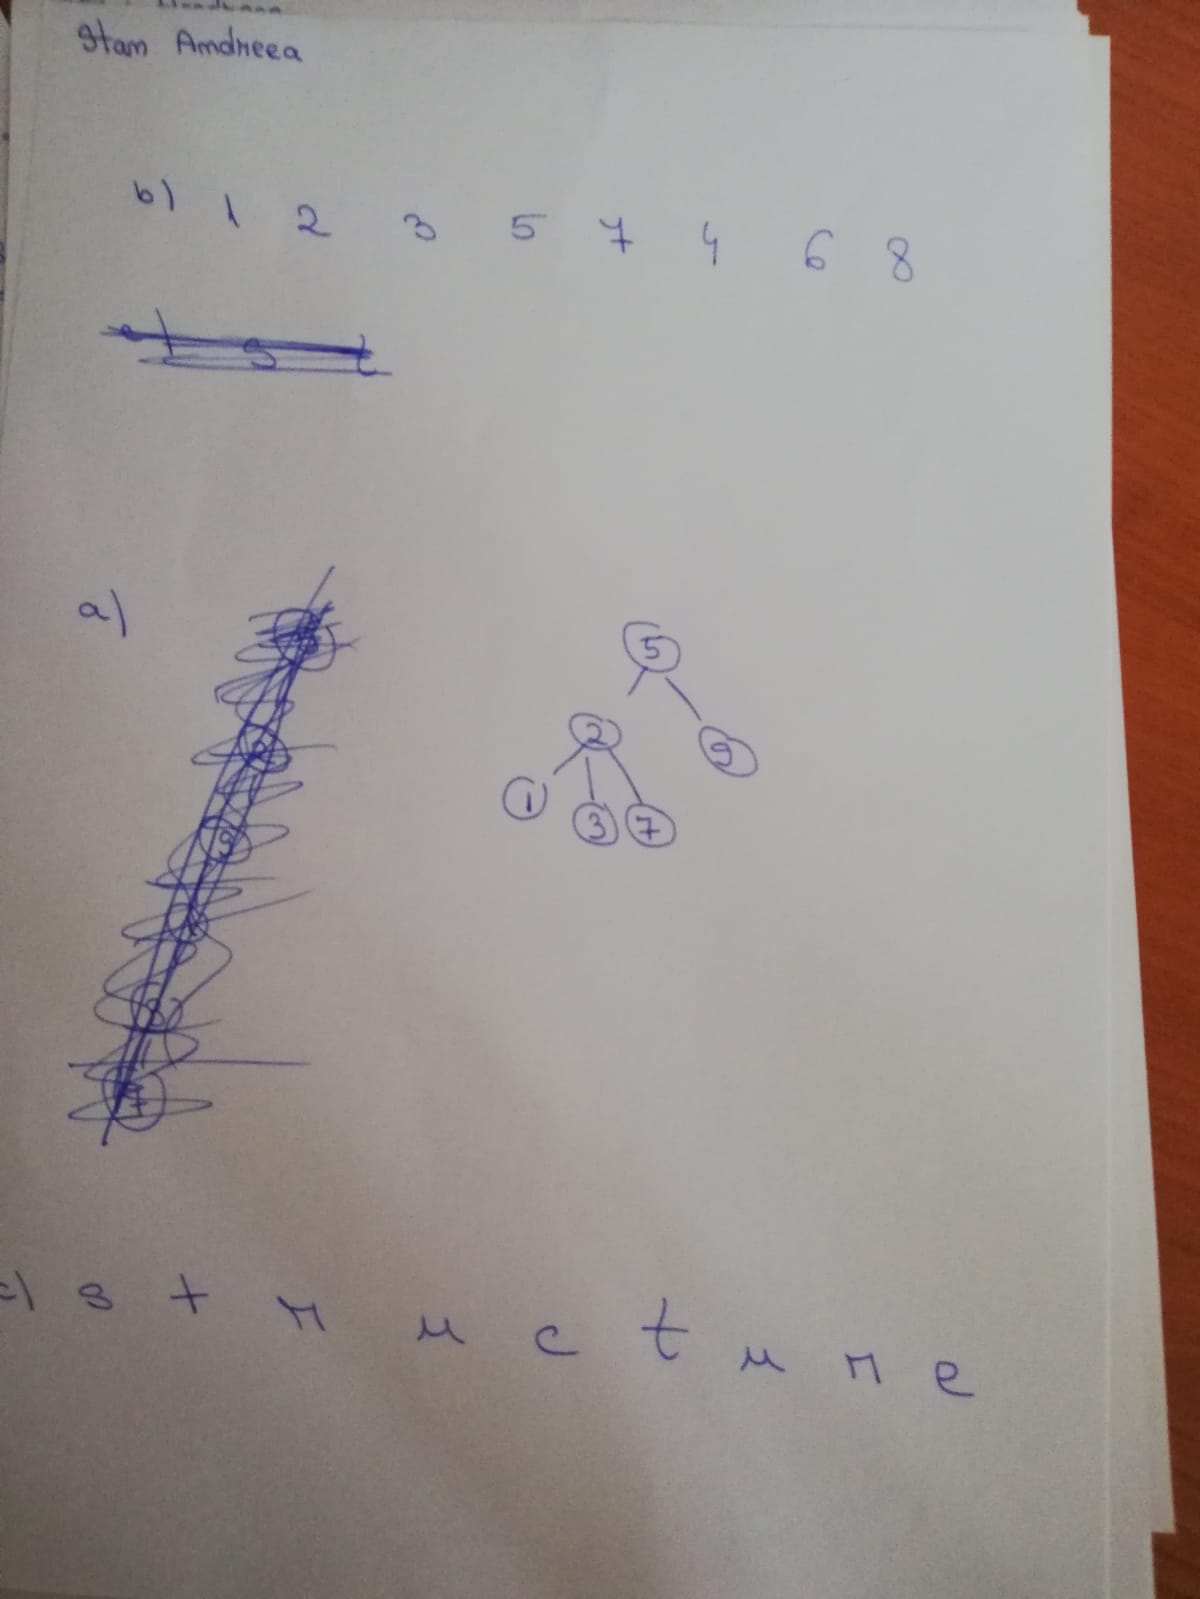 Stam Andreea
b) 1 2 3 5 7 4 6 8
a)
5
2 9
1 3 7
c) s t r u c t u r e